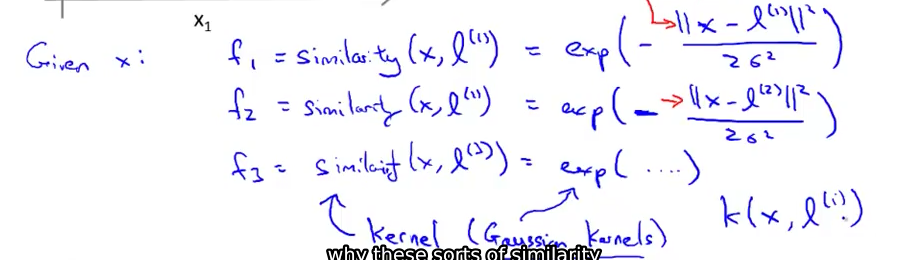 x₁
Given x: f₁ = similarity (x, l⁽¹⁾) = exp(- ||x - l⁽¹⁾||² / 2σ²)
f₂ = similarity (x, l⁽¹⁾) = exp(- ||x - l⁽²⁾||² / 2σ²)
f₃ = similarity (x, l⁽³⁾) = exp( ....)
kernel (Gaussian kernels) k(x, l⁽ⁱ⁾)
why these sorts of similarity